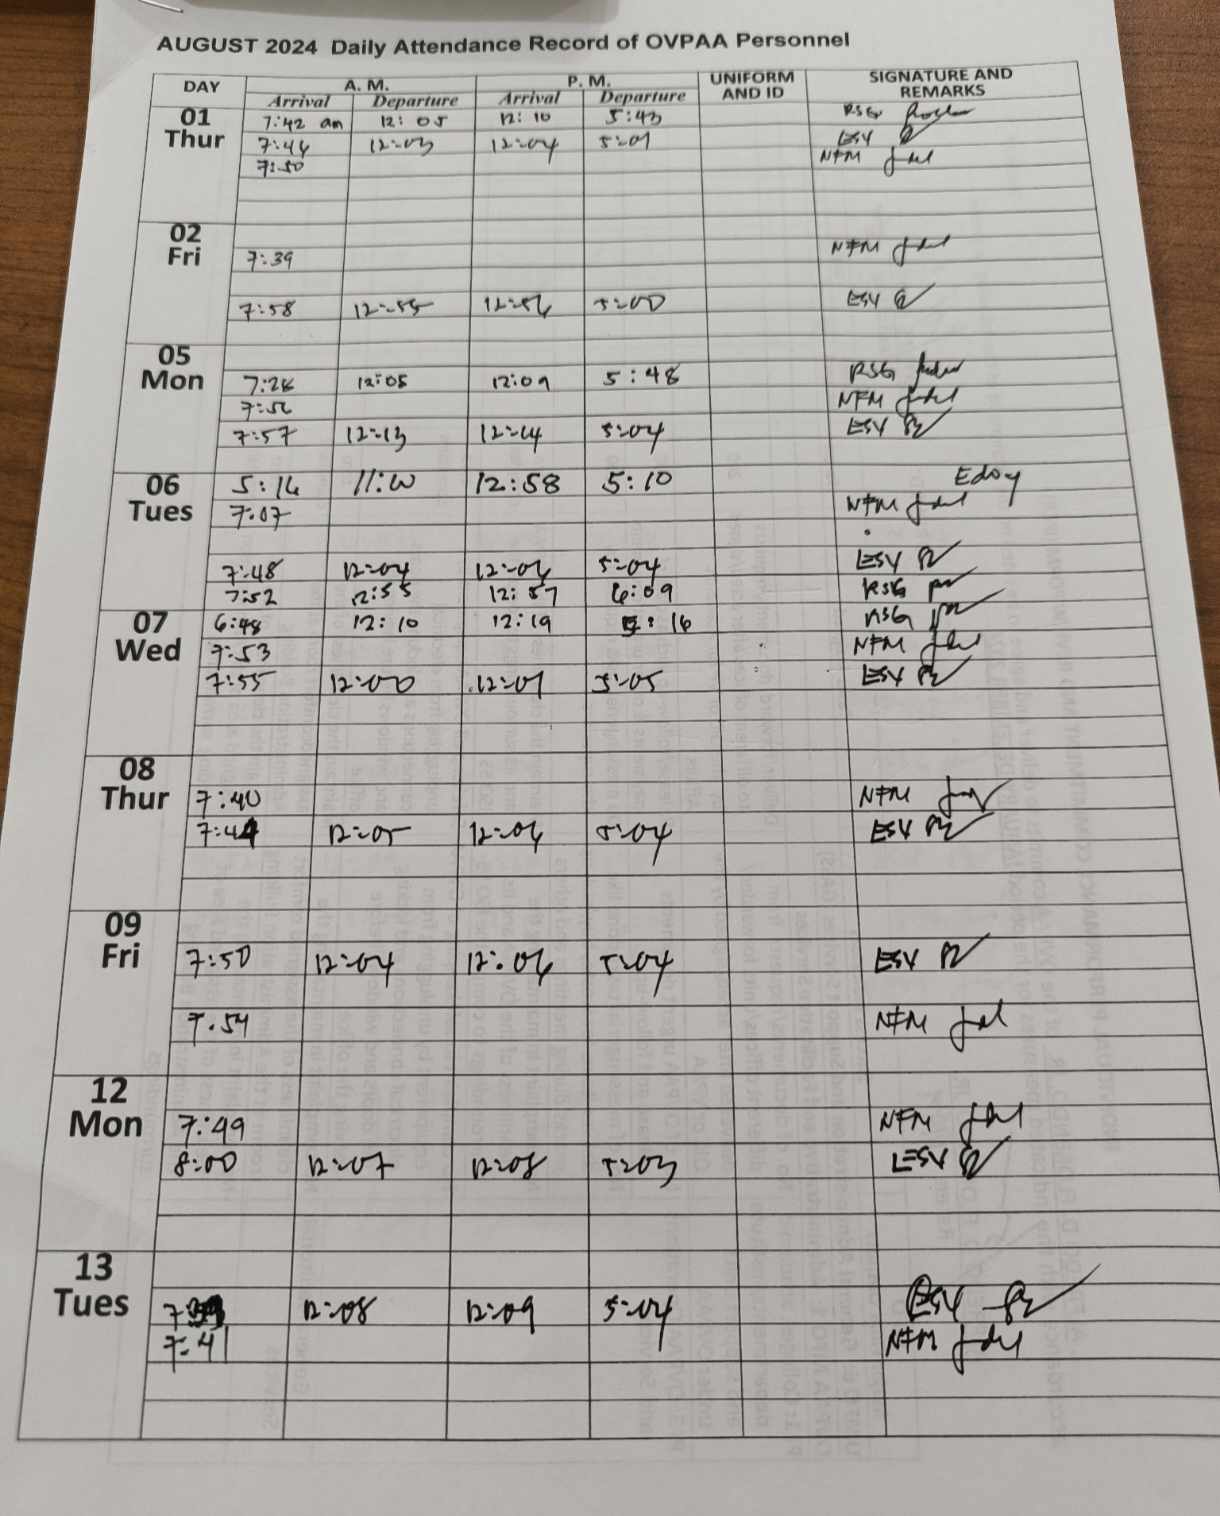 AUGUST 2024 Daily Attendance Record of OVPAA Personnel
DAY A. M. P. M. UNIFORM AND ID SIGNATURE AND REMARKS
Arrival Departure Arrival Departure
01 Thur
7:42 am 12:05 12:10 5:43 RSG
7:44 12:03 12:04 5:01 ESY
7:50 NFM
02 Fri
7:39 NFM
7:58 12:55 12:56 5:00 ESY
05 Mon
7:28 12:08 12:09 5:48 RSG
7:56 NFM
7:57 12:13 12:14 5:04 ESY
06 Tues
5:16 11:00 12:58 5:10 Edoy
7:07 NFM
7:48 12:04 12:06 5:04 ESY
7:52 12:55 12:57 6:09 RSG
07 Wed
6:48 12:10 12:19 5:16 RSG
7:53 NFM
7:55 12:00 12:01 5:05 ESY
08 Thur
7:40 NFM
7:44 12:05 12:06 5:04 ESY
09 Fri
7:50 12:04 12:06 5:04 ESY
7:54 NFM
12 Mon
7:49 NFM
8:00 12:07 12:08 5:03 ESY
13 Tues
7:39 12:08 12:09 5:04 ESY
7:41 NFM